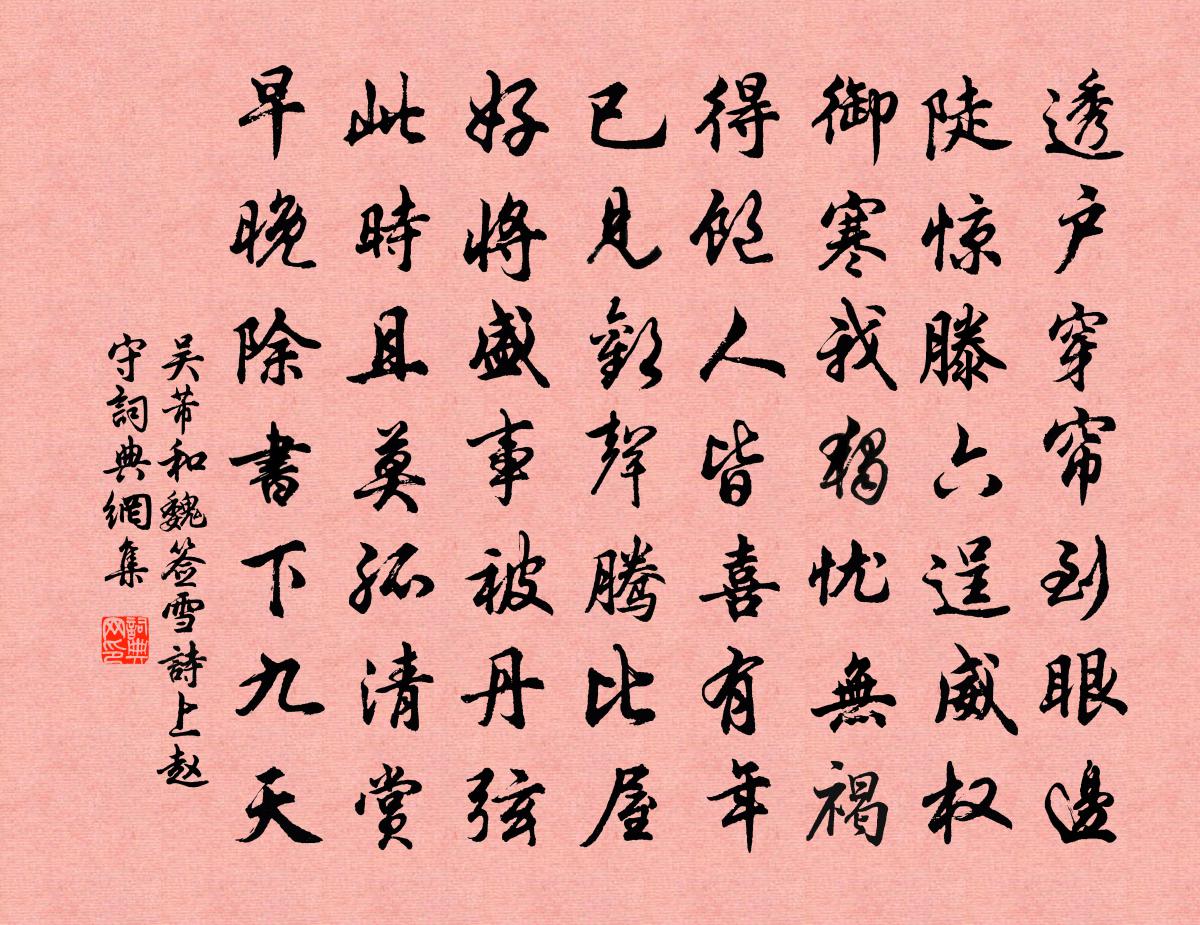 透户穿帘到眼邊
陡惊滕六逞威权
御寒我獨忧無褐
得飽人皆喜有年
已見歡聲騰比屋
好將盛事被丹弦
此時且莫孤清赏
早晚除書下九天
吴芾和魏签雪詩上赵
守詞典網集
詞典網印